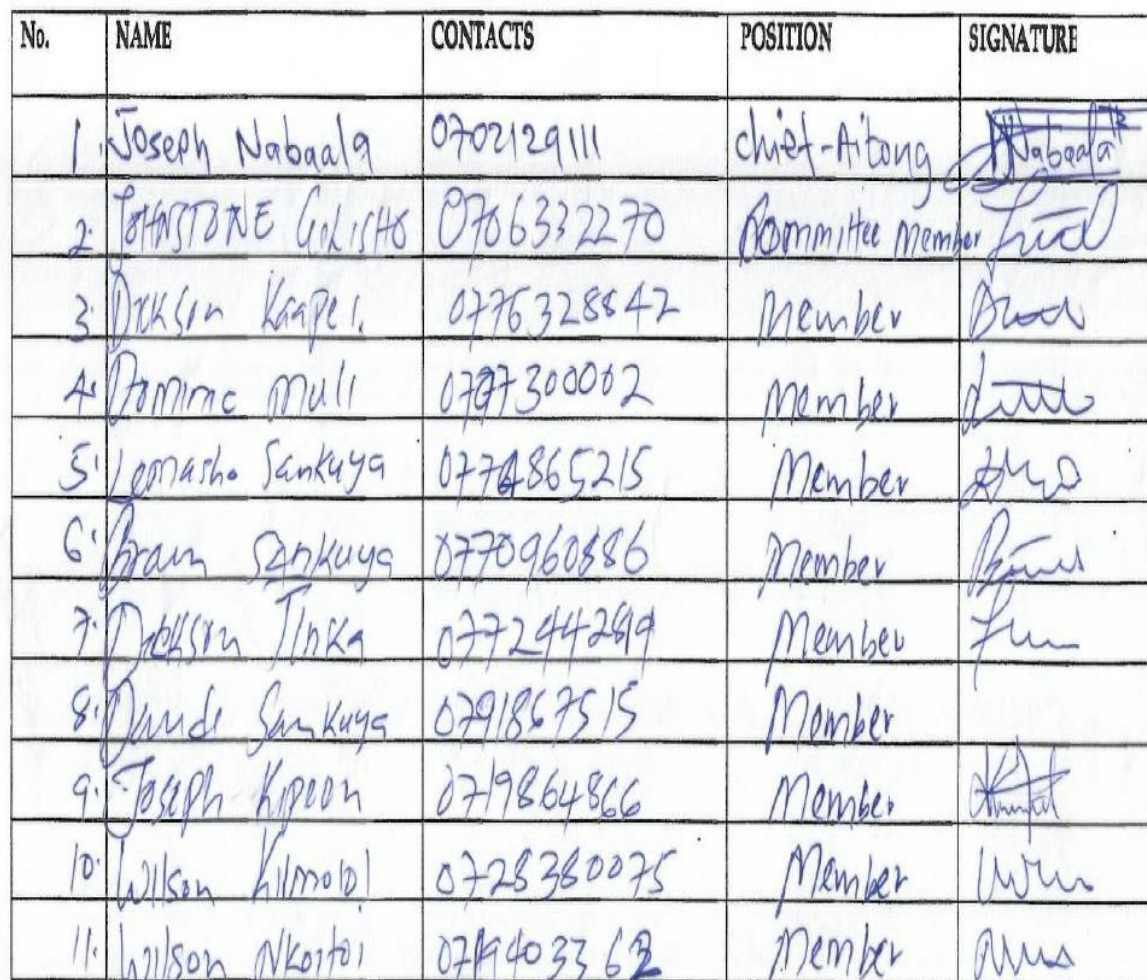 No. NAME CONTACTS POSITION SIGNATURE
1. Joseph Nabaala 0702129111 chief-Aitong Nabaala
2. JOHNSTONE 0706332270 Committee Member
3. Dickson Kaapei. 0776328842 Member
4. Dominic Muli 0797300002 Member
5. Lemasho Sankuya 0774865215 Member
6. Brain Sankuya 0770960886 Member
7. Dickson Tinka Member
8. Sankuya 0791867515 Member
9. Joseph Kipeen 0719864866 Member
10. Wilson Kilmolol 0728380075 Member
11. Wilson Nkoitoi Member